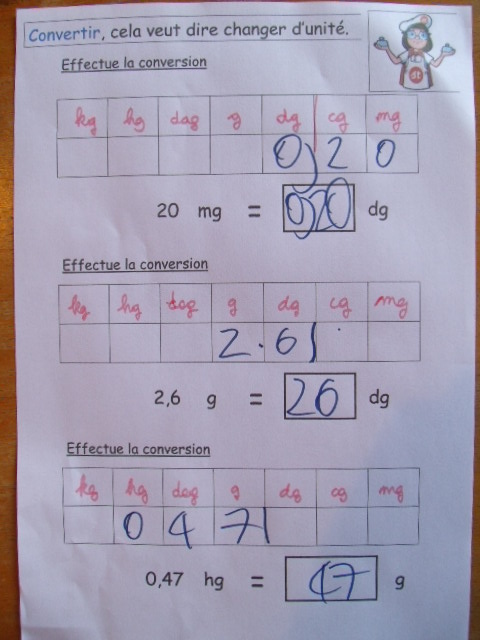 Convertir, cela veut dire changer d'unité.
Effectue la conversion
kg hg dag g dg cg mg
0, 2 0
20 mg = 0,20 dg
Effectue la conversion
kg hg dag g dg cg mg
2 . 6
2,6 g = 26 dg
Effectue la conversion
kg hg dag g dg cg mg
0 4 7
0,47 hg = 47 g